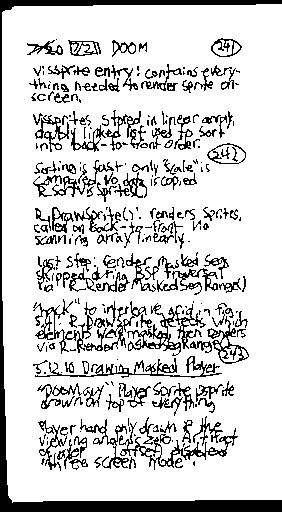 7/21 DOOM 241
vissprite entry: contains every-
thing needed to render sprite on-
screen.
Vissprites stored in linear array,
doubly linked list used to sort
into back-to-front order.
242
sorting is fast: only "scale" is
compared. No data is copied
R_SortVisSprites()
R_DrawSprite(): renders sprites,
called on back-to-front via
scanning array linearly.
last step: render masked segs
skipped during BSP traversal
via R_RenderMaskedSegRange()
"hack" to interleave grid in fig.
5.41: R_DrawSprite detects which
elements were masked, then renders
via R_RenderMaskedSegRange()
243
5.12.10 Drawing Masked Player
"DOOM guy" Player Sprite psprite
drawn on top of everything
Player hand only drawn if the
viewing angle is zero. Artifact
of older (offset) displayed
"three screen mode".